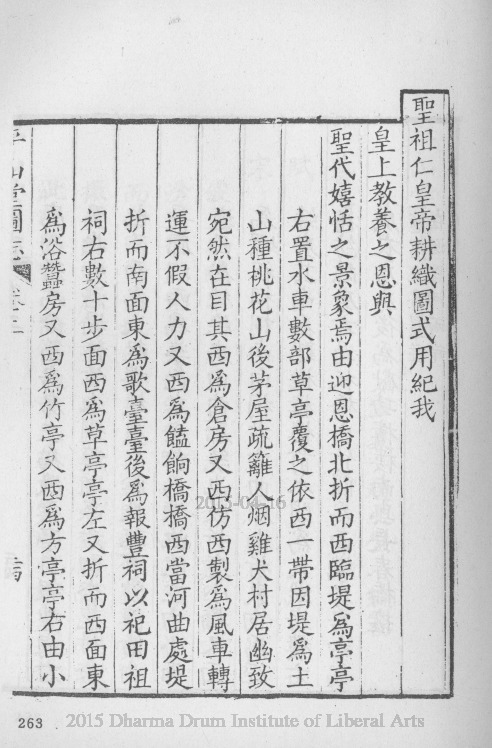 聖祖仁皇帝耕織圖式用紀我
皇上教養之恩與
聖代嬉恬之景象焉由迎恩橋北折而西臨堤為亭亭
右置水車數部草亭覆之依西一帶因堤為土
山種桃花山後茅屋疏籬人烟雞犬村居幽致
宛然在目其西為倉房又西仿西製為風車轉
運不假人力又西為饁餉橋橋西當河曲處堤
折而南面東為歌臺臺後為報豐祠以祀田祖
祠右數十步面西為草亭亭左又折而西面東
為浴蠶房又西為竹亭又西為方亭亭右由小
平山堂圖志
263
2015 Dharma Drum Institute of Liberal Arts